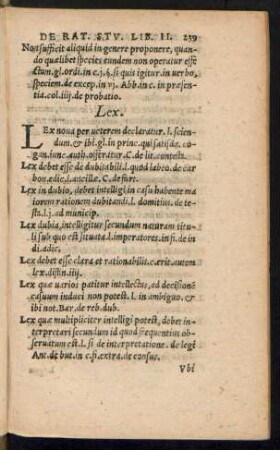 DE RAT. STV. LIB. II. 239
Non sufficit aliquid in genere proponere, quan-
do quælibet species eundem non operatur effe
ctum. gl. ordi. in c. j. §. si quit igitur. in uerbo,
speciem. de excep. in vj. Abb. in c. in præsen-
tia. col. iiij. de probatio.
Lex.
LEx noua per ueterem declaratur. l. scien-
dum. & ibi gl. in princ. qui satisda. co-
gan. iunc. auth. offeratur. C. de lit. contest.
Lex debet esse de dubitabili. l. quod labeo. de car
bon. edic. l. ancillæ. C. de furt.
Lex in dubio, debet intelligi in casu habente ma
iorem rationem dubitandi. l. domitius. de te-
sta. l. j. ad municip.
Lex dubia, intelligitur secundum naturam titu-
li sub quo est situata. l. imperatores. in fi. de in
di. adic.
Lex debet esse clara et rationabilit. c. erit autem
lex. distin. iiij.
Lex quæ uarios patitur intellectus, ad decisionē
casuum induci non potest. l. in ambiguo. &
ibi not. Bar. de reb. dub.
Lex quæ multipliciter intelligi potest, debet in-
terpretari secundum id quod frequentius ob-
seruatum est. l. si de interpretatione. de legi
Ant. de but. in c. fi. extra. de consue.
Vbi